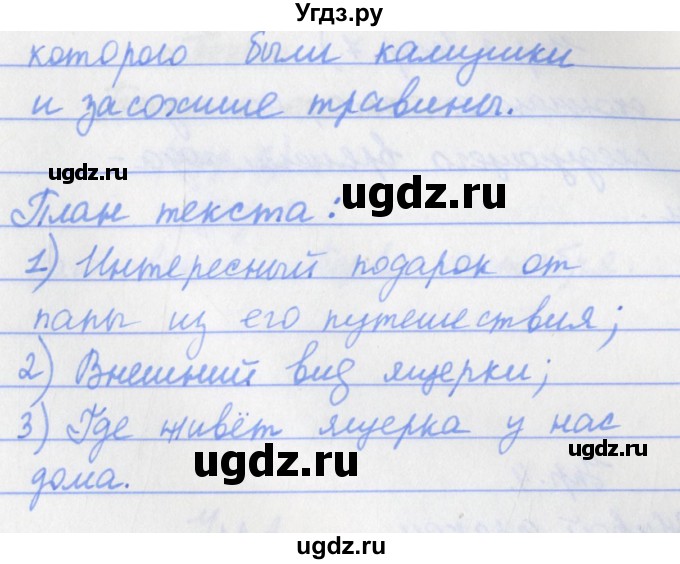 Угдз.ру
которого были камушки
и засохшие травины.
ugdz.ru
ugdz.ru
План текста:
1) Интересный подарок от
папы из его путешествия;
ugdz.ru
2) Внешний вид ящерки;
3) Где живёт ящерка у нас
ugdz.ru
ugdz.ru
дома.
ugdz.ru